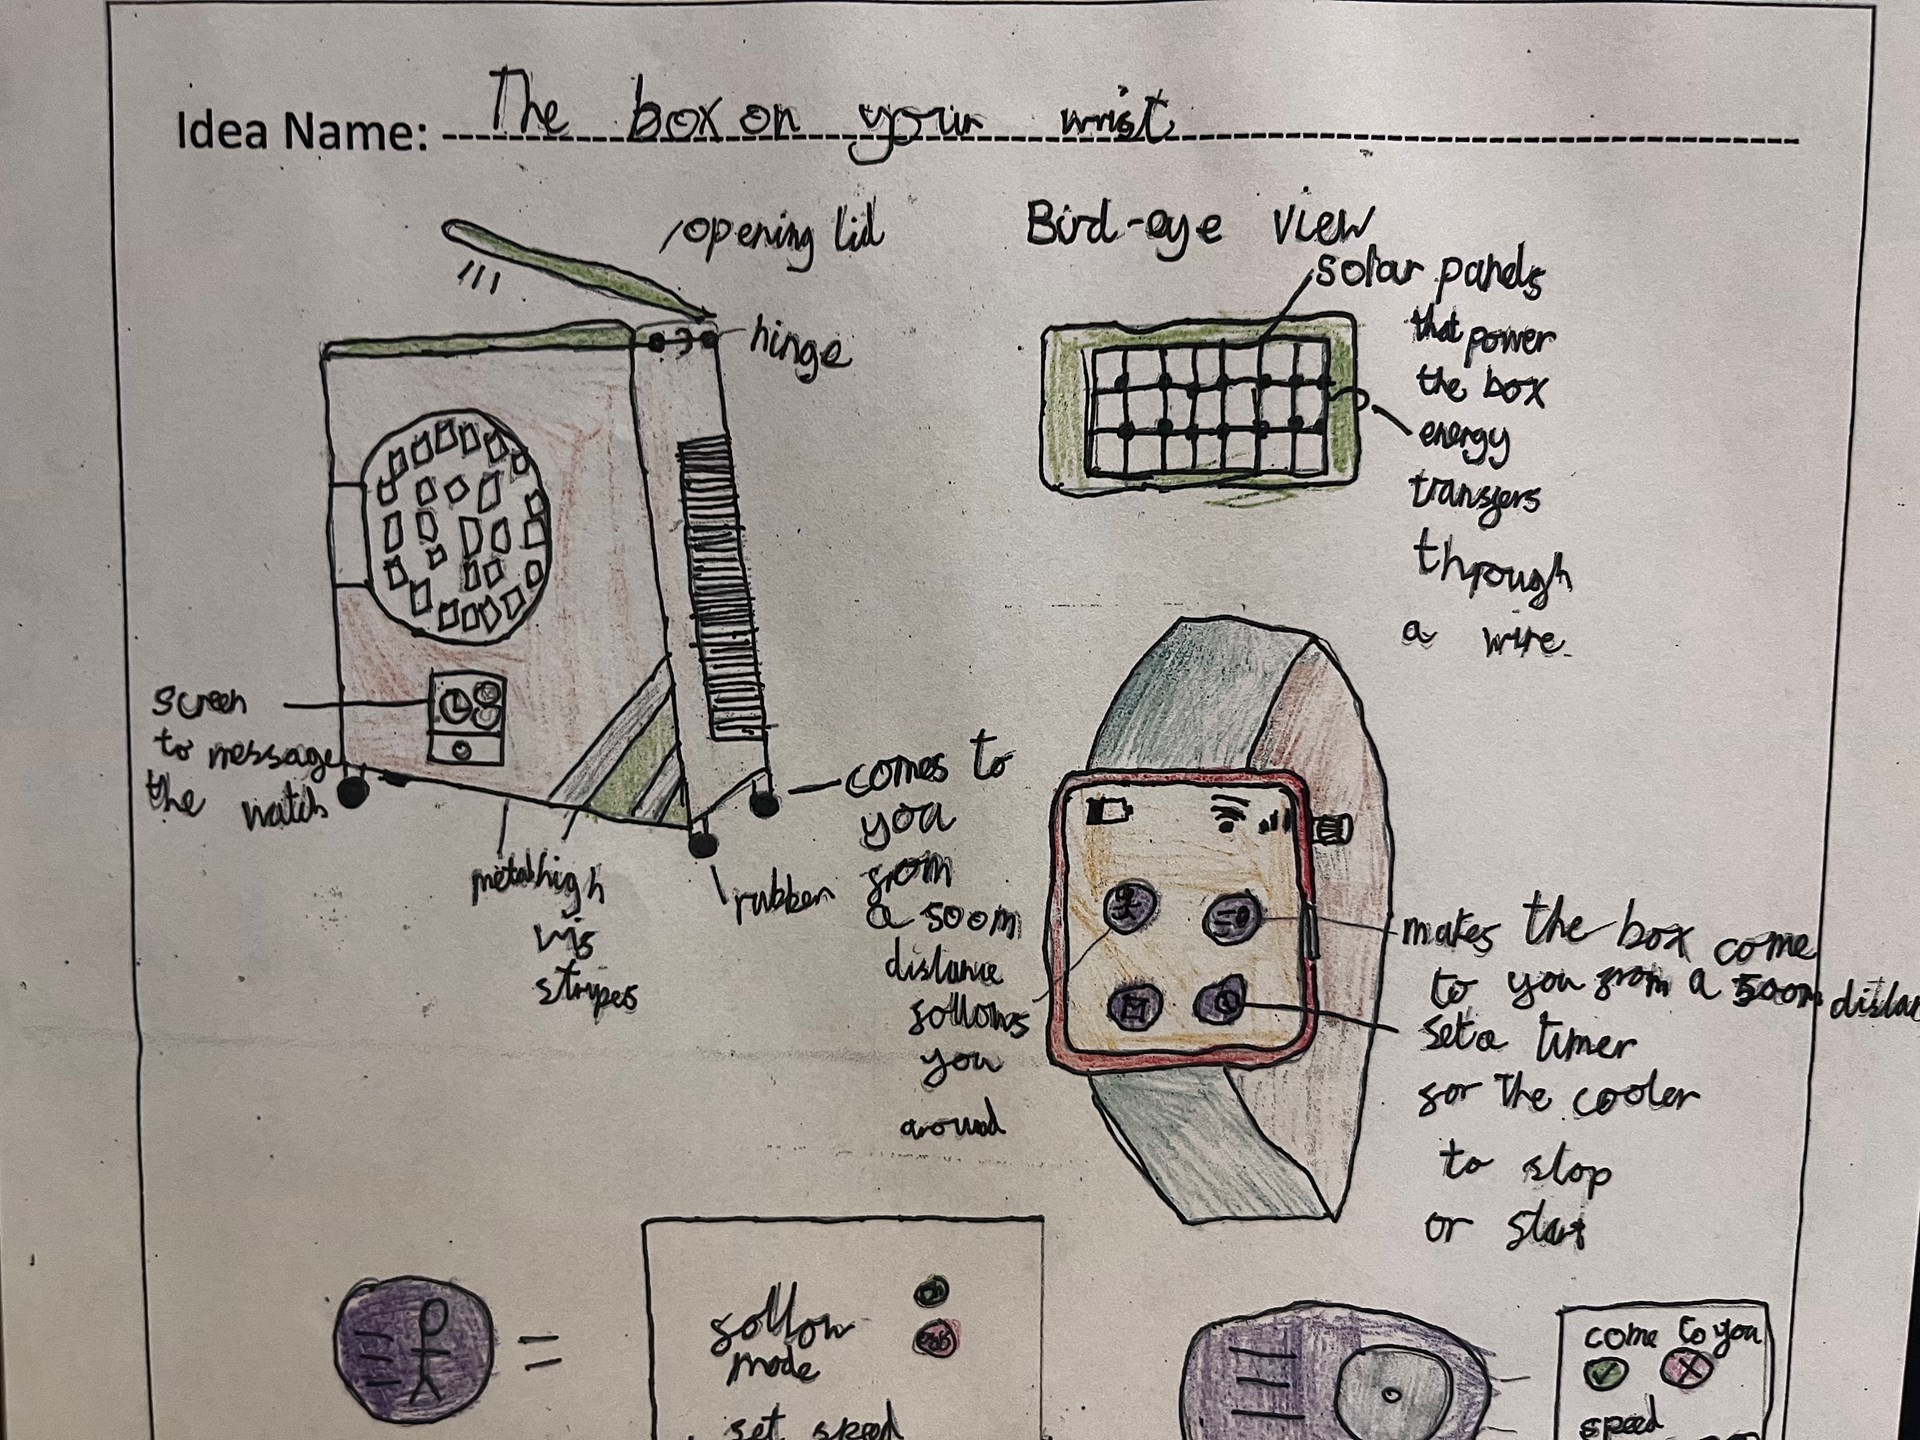 Idea Name: The box on your wrist
opening lid
hinge
Bird-eye view
solar panels
that power
the box
energy
transfers
through
a wire.
screen
to message
the watch
metal
high
vis
stripes
rubber
comes to
you
from
a 500m
distance
follows
you
around
makes the box come
to you from a 500m
set a timer
for the cooler
to stop
or start
=
follow
mode
set speed
come to you
speed